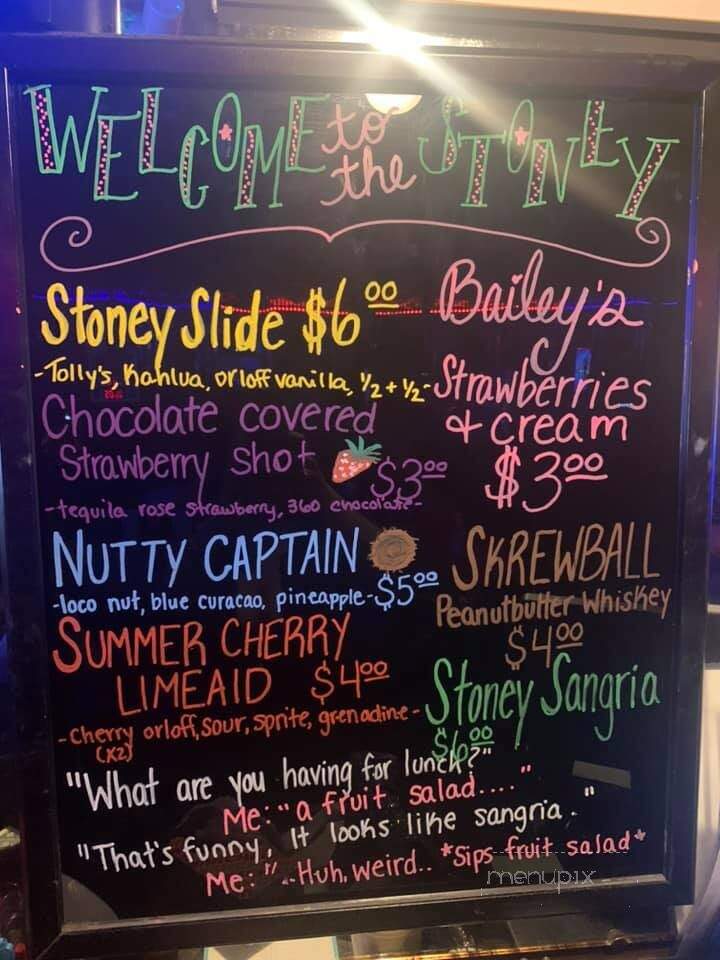 WELCOME to the STONEY
Stoney Slide $6.00
-Tolly's, Kahlua, orloff vanilla, 1/2 + 1/2-
Chocolate covered
Strawberry Shot $3.00
-tequila rose strawberry, 360 chocolate-
NUTTY CAPTAIN
-loco nut, blue curacao, pineapple- $5.00
SUMMER CHERRY
LIMEAID $4.00
-Cherry orloff, sour, sprite, grenadine-
(x2)
Bailey's
Strawberries
& cream
$3.00
SKREWBALL
Peanutbutter Whiskey
$4.00
Stoney Sangria
$6.00
"What are you having for lunch?"
Me: "a fruit salad...."
"That's funny, It looks like sangria."
Me: "..Huh, weird.. *Sips fruit salad*
menupix